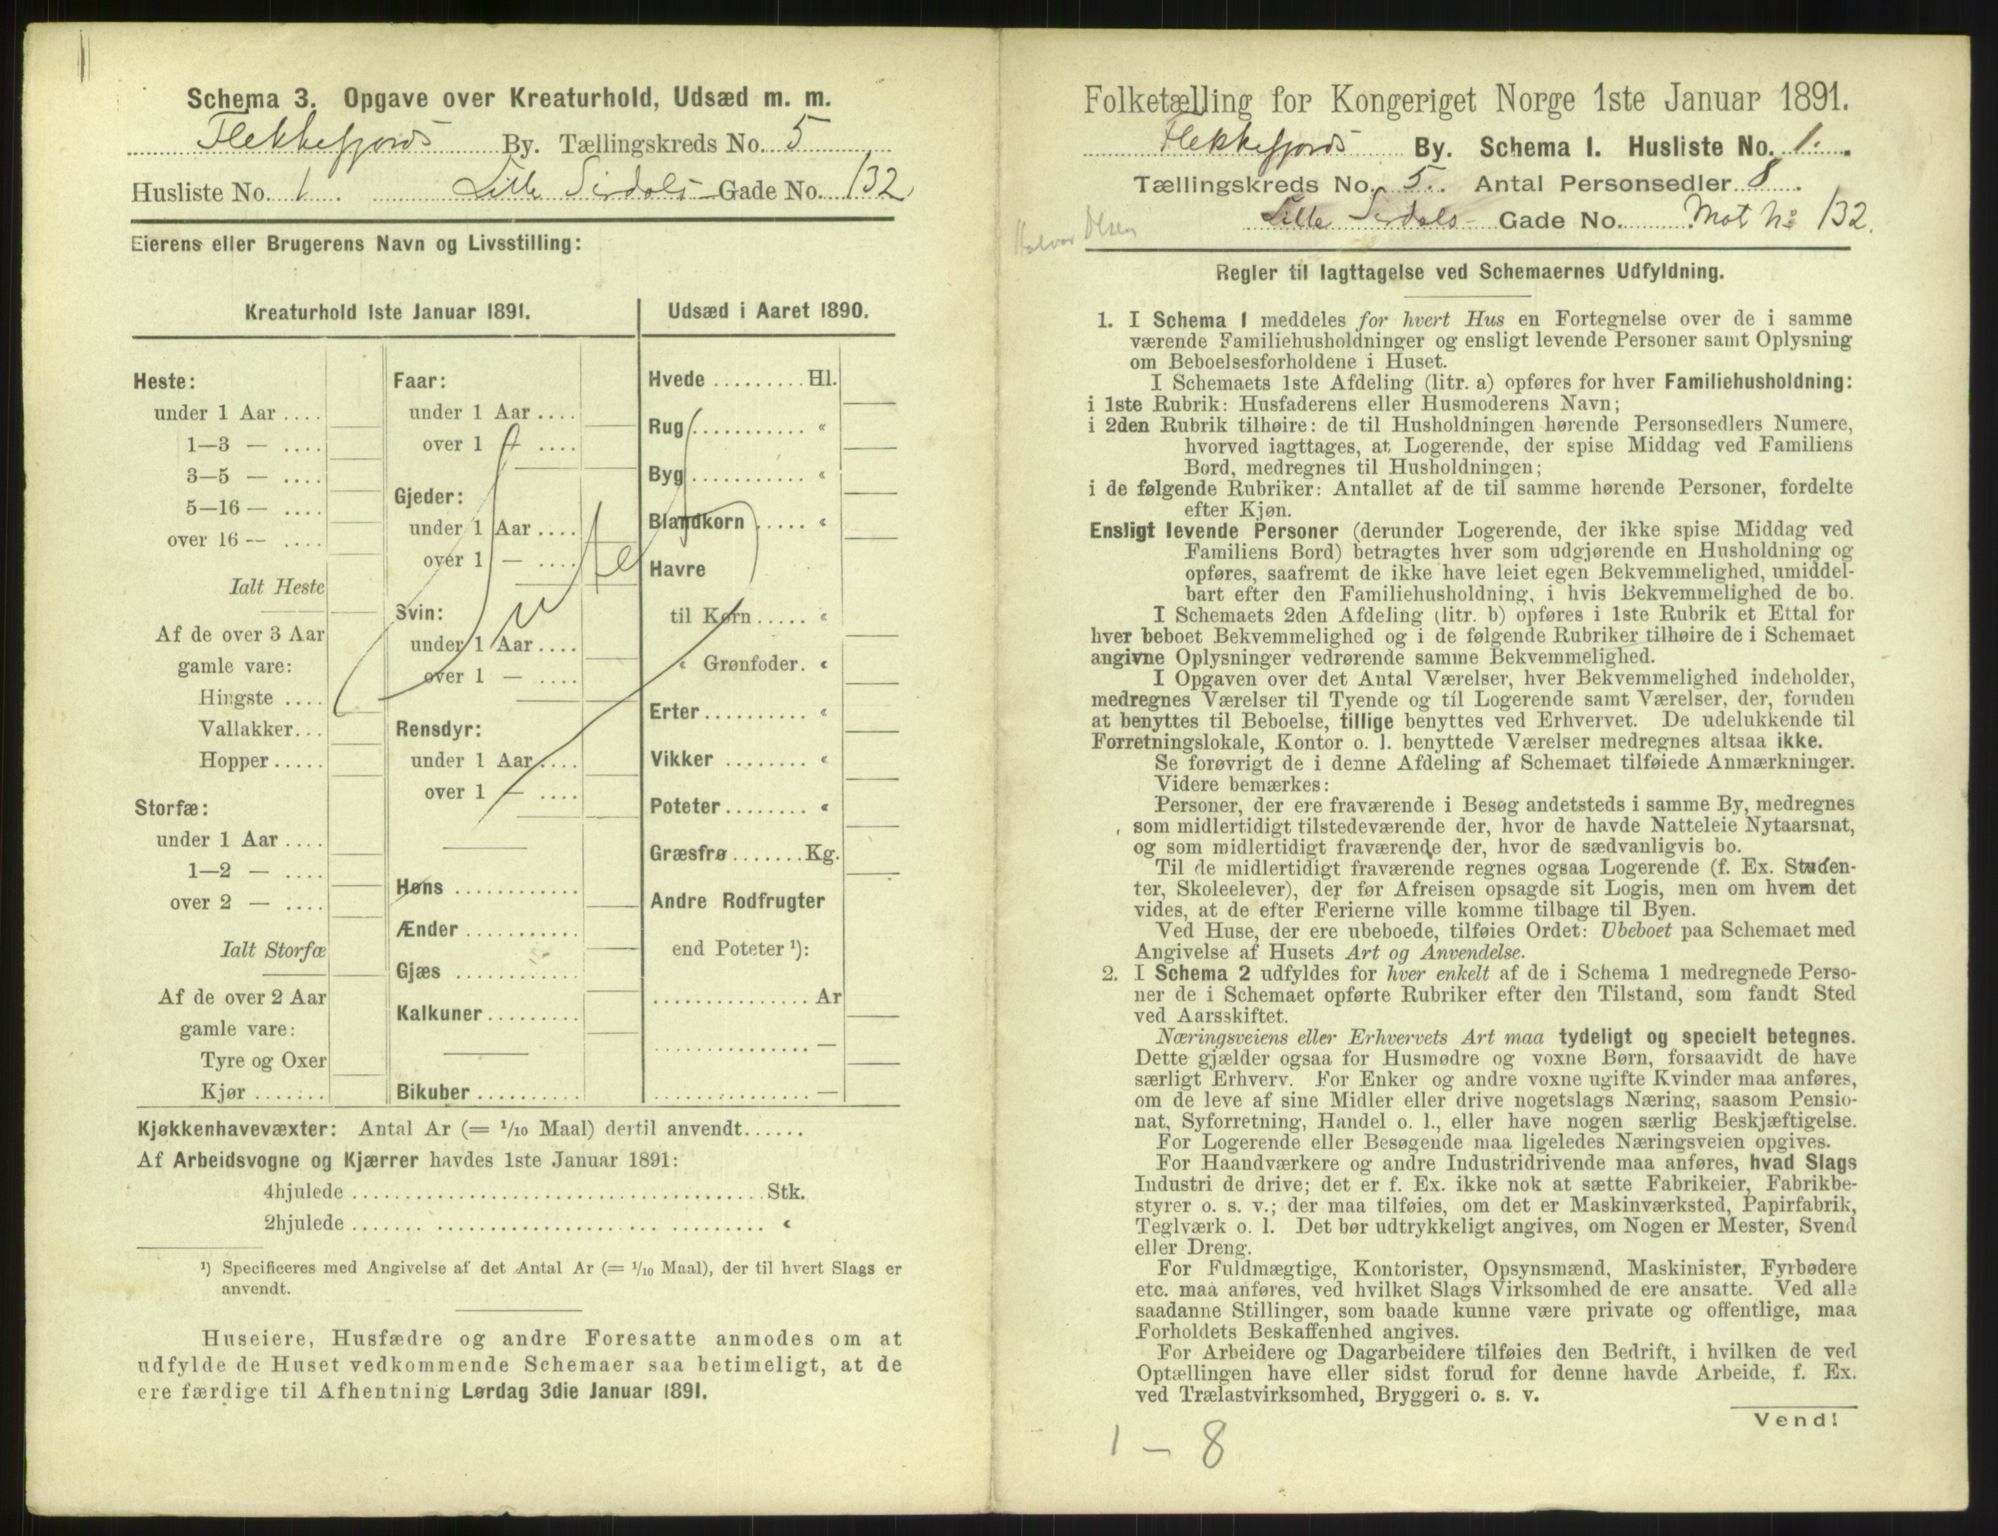 Schema 3. Opgave over Kreaturhold, Udsæd m. m.
Flekkefjords By. Tællingskreds No. 5
Husliste No. 1. Lille Sirdals Gade No. 132
Eierens eller Brugerens Navn og Livsstilling:
Kreaturhold 1ste Januar 1891.
Heste:
under 1 Aar ....
1—3 — ....
3—5 — ....
5—16 — ....
over 16 — ....
Ialt Heste
Af de over 3 Aar
gamle vare:
Hingste ....
Vallakker...
Hopper .....
Storfæ:
under 1 Aar ....
1—2 — ....
over 2 — ....
Ialt Storfæ
Af de over 2 Aar
gamle vare:
Tyre og Oxer
Kjør .......
Faar:
under 1 Aar ....
over 1 — ....
Gjeder:
under 1 Aar ....
over 1 — ....
Svin:
under 1 Aar ....
over 1 — ....
Rensdyr:
under 1 Aar ....
over 1 — ....
Høns ............
Ænder ...........
Gjæs ............
Kalkuner.........
Bikuber ..........
Udsæd i Aaret 1890.
Hvede ......... Hl.
Rug ........... «
Byg ........... «
Blandkorn ..... «
Havre
til Korn ..... «
« Grønfoder. «
Erter .......... «
Vikker ........ «
Poteter ........ «
Græsfrø ....... Kg.
Andre Rodfrugter
end Poteter ¹):
............... Ar
............... —
............... —
Kjøkkenhavevæxter: Antal Ar (= 1/10 Maal) dertil anvendt......
Af Arbeidsvogne og Kjærrer havdes 1ste Januar 1891:
4hjulede ........................................ Stk.
2hjulede ....... ............................... «
¹) Specificeres med Angivelse af det Antal Ar (= 1/10 Maal), der til hvert Slags er
anvendt.
Huseiere, Husfædre og andre Foresatte anmodes om at
udfylde de Huset vedkommende Schemaer saa betimeligt, at de
ere færdige til Afhentning Lørdag 3die Januar 1891.
Folketælling for Kongeriget Norge 1ste Januar 1891.
Flekkefjords By. Schema I. Husliste No. 1.
Tællingskreds No. 5. Antal Personsedler 8.
Lille Sirdals Gade No. Mat No 132.
Halvor Olsen
Regler til Iagttagelse ved Schemaernes Udfyldning.
1. I Schema 1 meddeles for hvert Hus en Fortegnelse over de i samme
værende Familiehusholdninger og ensligt levende Personer samt Oplysning
om Beboelsesforholdene i Huset.
I Schemaets 1ste Afdeling (litr. a) opføres for hver Familiehusholdning:
i 1ste Rubrik: Husfaderens eller Husmoderens Navn;
i 2den Rubrik tilhøire: de til Husholdningen hørende Personsedlers Numere,
hvorved iagttages, at Logerende, der spise Middag ved Familiens
Bord, medregnes til Husholdningen;
i de følgende Rubriker: Antallet af de til samme hørende Personer, fordelte
efter Kjøn.
Ensligt levende Personer (derunder Logerende, der ikke spise Middag ved
Familiens Bord) betragtes hver som udgjørende en Husholdning og
opføres, saafremt de ikke have leiet egen Bekvemmelighed, umiddel-
bart efter den Familiehusholdning, i hvis Bekvemmelighed de bo.
I Schemaets 2den Afdeling (litr. b) opføres i 1ste Rubrik et Ettal for
hver beboet Bekvemmelighed og i de følgende Rubriker tilhøire de i Schemaet
angivne Oplysninger vedrørende samme Bekvemmelighed.
I Opgaven over det Antal Værelser, hver Bekvemmelighed indeholder,
medregnes Værelser til Tyende og til Logerende samt Værelser, der, foruden
at benyttes til Beboelse, tillige benyttes ved Erhvervet. De udelukkende til
Forretningslokale, Kontor o. l. benyttede Værelser medregnes altsaa ikke.
Se forøvrigt de i denne Afdeling af Schemaet tilføiede Anmærkninger.
Videre bemærkes:
Personer, der ere fraværende i Besøg andetsteds i samme By, medregnes
som midlertidigt tilstedeværende der, hvor de havde Natteleie Nytaarsnat,
og som midlertidigt fraværende der, hvor de sædvanligvis bo.
Til de midlertidigt fraværende regnes ogsaa Logerende (f. Ex. Studen-
ter, Skoleelever), der før Afreisen opsagde sit Logis, men om hvem det
vides, at de efter Ferierne ville komme tilbage til Byen.
Ved Huse, der ere ubeboede, tilføies Ordet: Ubeboet paa Schemaet med
Angivelse af Husets Art og Anvendelse.
2. I Schema 2 udfyldes for hver enkelt af de i Schema 1 medregnede Perso-
ner de i Schemaet opførte Rubriker efter den Tilstand, som fandt Sted
ved Aarsskiftet.
Næringsveiens eller Erhvervets Art maa tydeligt og specielt betegnes.
Dette gjælder ogsaa for Husmødre og voxne Børn, forsaavidt de have
særligt Erhverv. For Enker og andre voxne ugifte Kvinder maa anføres,
om de leve af sine Midler eller drive nogetslags Næring, saasom Pensio-
nat, Syforretning, Handel o. l., eller have nogen særlig Beskjæftigelse.
For Logerende eller Besøgende maa ligeledes Næringsveien opgives.
For Haandværkere og andre Industridrivende maa anføres, hvad Slags
Industri de drive; det er f. Ex. ikke nok at sætte Fabrikeier, Fabrikbe-
styrer o. s. v.; der maa tilføies, om det er Maskinværksted, Papirfabrik,
Teglværk o. l. Det bør udtrykkeligt angives, om Nogen er Mester, Svend
eller Dreng.
For Fuldmægtige, Kontorister, Opsynsmænd, Maskinister, Fyrbødere
etc. maa anføres, ved hvilket Slags Virksomhed de ere ansatte. Ved alle
saadanne Stillinger, som baade kunne være private og offentlige, maa
Forholdets Beskaffenhed angives.
For Arbeidere og Dagarbeidere tilføies den Bedrift, i hvilken de ved
Optællingen have eller sidst forud for denne havde Arbeide, f. Ex.
ved Trælastvirksomhed, Bryggeri o. s. v.
Vend!
1 — 8